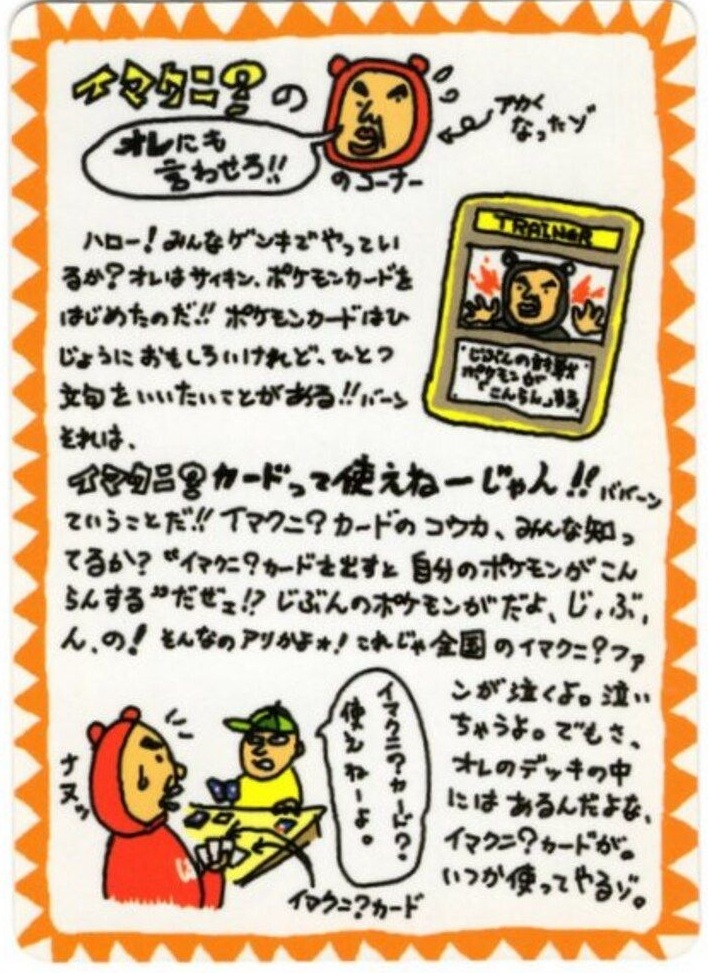 イマクニ?の
オレにも
言わせろ!!
のコーナー
アカく
なったゾ
ハロー!みんなゲンキでやってい
るか?オレはサイキン、ポケモンカードを
はじめたのだ!!ポケモンカードはひ
じょうにおもしろいけれど、ひとつ
文句をいいたいことがある!!バーン
それは、
TRAINER
じぶんの対戦
ポケモンが
「こんらん」する
イマクニ?カードって使えねーじゃん!!ババーン
ていうことだ!!イマクニ?カードのコウカ、みんな知っ
てるか?“イマクニ?カードを出すと自分のポケモンがこん
らんする”だぜェ!?じぶんのポケモンがだよ、じ、ぶ、
ん、の!そんなのアリかよォ!これじゃ全国のイマクニ?ファ
ンが泣くよ。泣い
ちゃうよ。でもさ、
オレのデッキの中
にはあるんだよな、
イマクニ?カードが。
いつか使ってやるゾ。
ナヌッ
イマクニ?カード?
使えねーよ。
イマクニ?カード